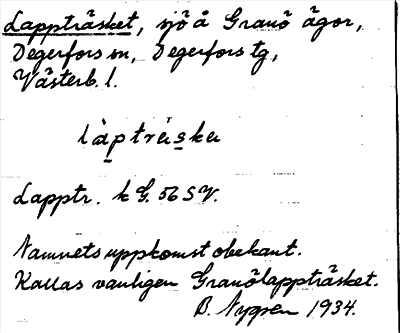 Lappträsket, sjö å Granö ägor,
Degerfors sn, Degerfors tg,
Västerb. l.
làptrǽska
Lapptr. k G. 56 S V.
Namnets uppkomst obekant.
Kallas vanligen Granölappträsket.
B. Nygren 1934.